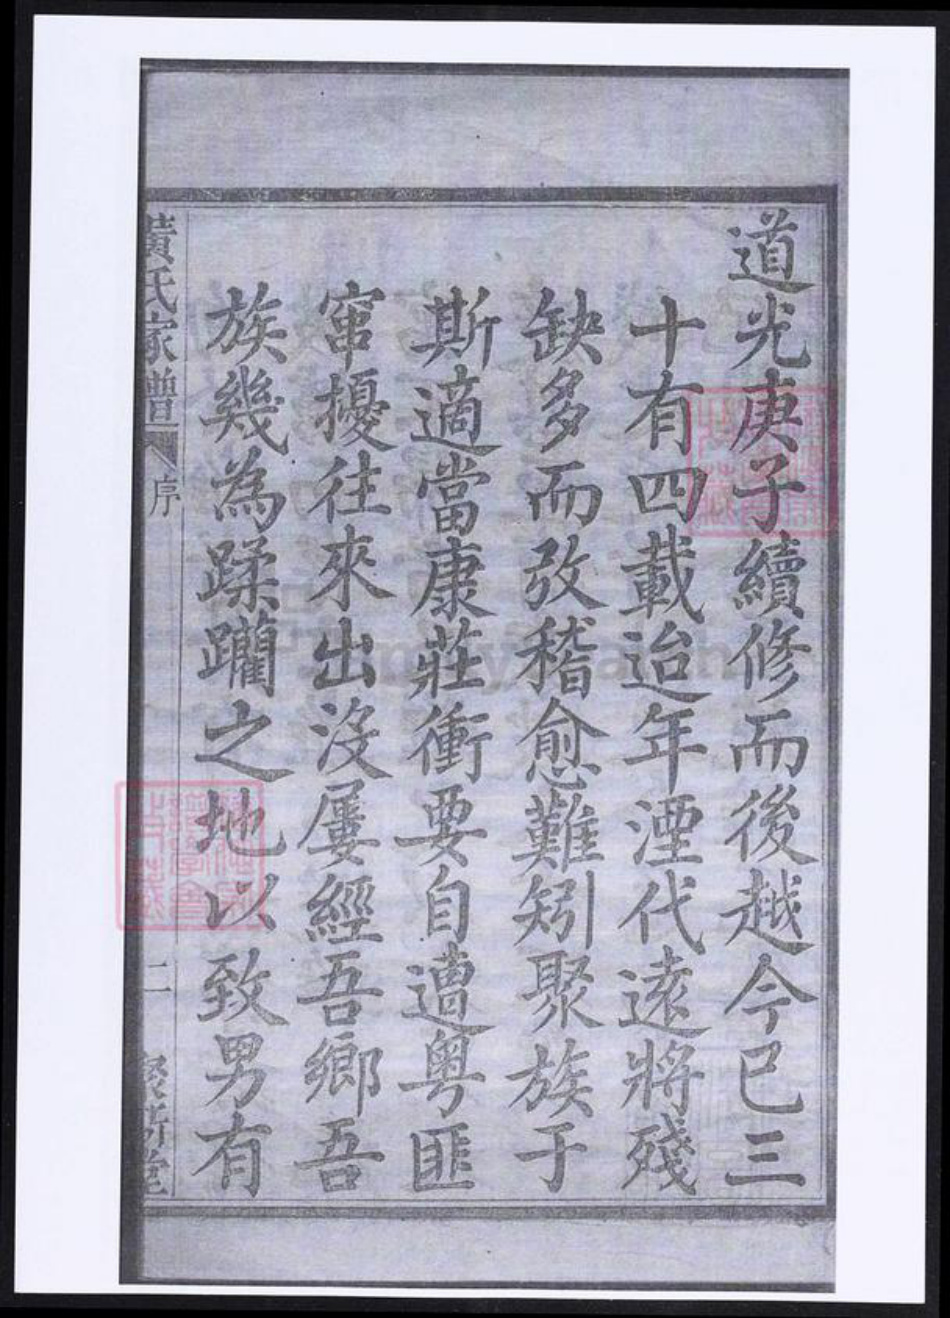 道光庚子續修而後越今已三
十有四載迨年湮代遠將殘
缺多而攷稽愈難矧聚族于
斯適當康莊衝要自遭粤匪
竄擾往來出沒屢經吾鄉吾
族幾為蹂躪之地以致男有
黃氏家譜 序 二 聚斯堂